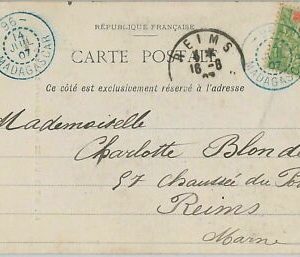 RÉPUBLIQUE FRANÇAISE
CARTE POSTALE
Ce côté est exclusivement réservé à l'adresse
96
14
JUIL
07
MADAGASCAR
REIMS
16-8
MADAGASCAR
Mademoiselle
Charlotte Blond
57 Chaussée du
Reims
Marne